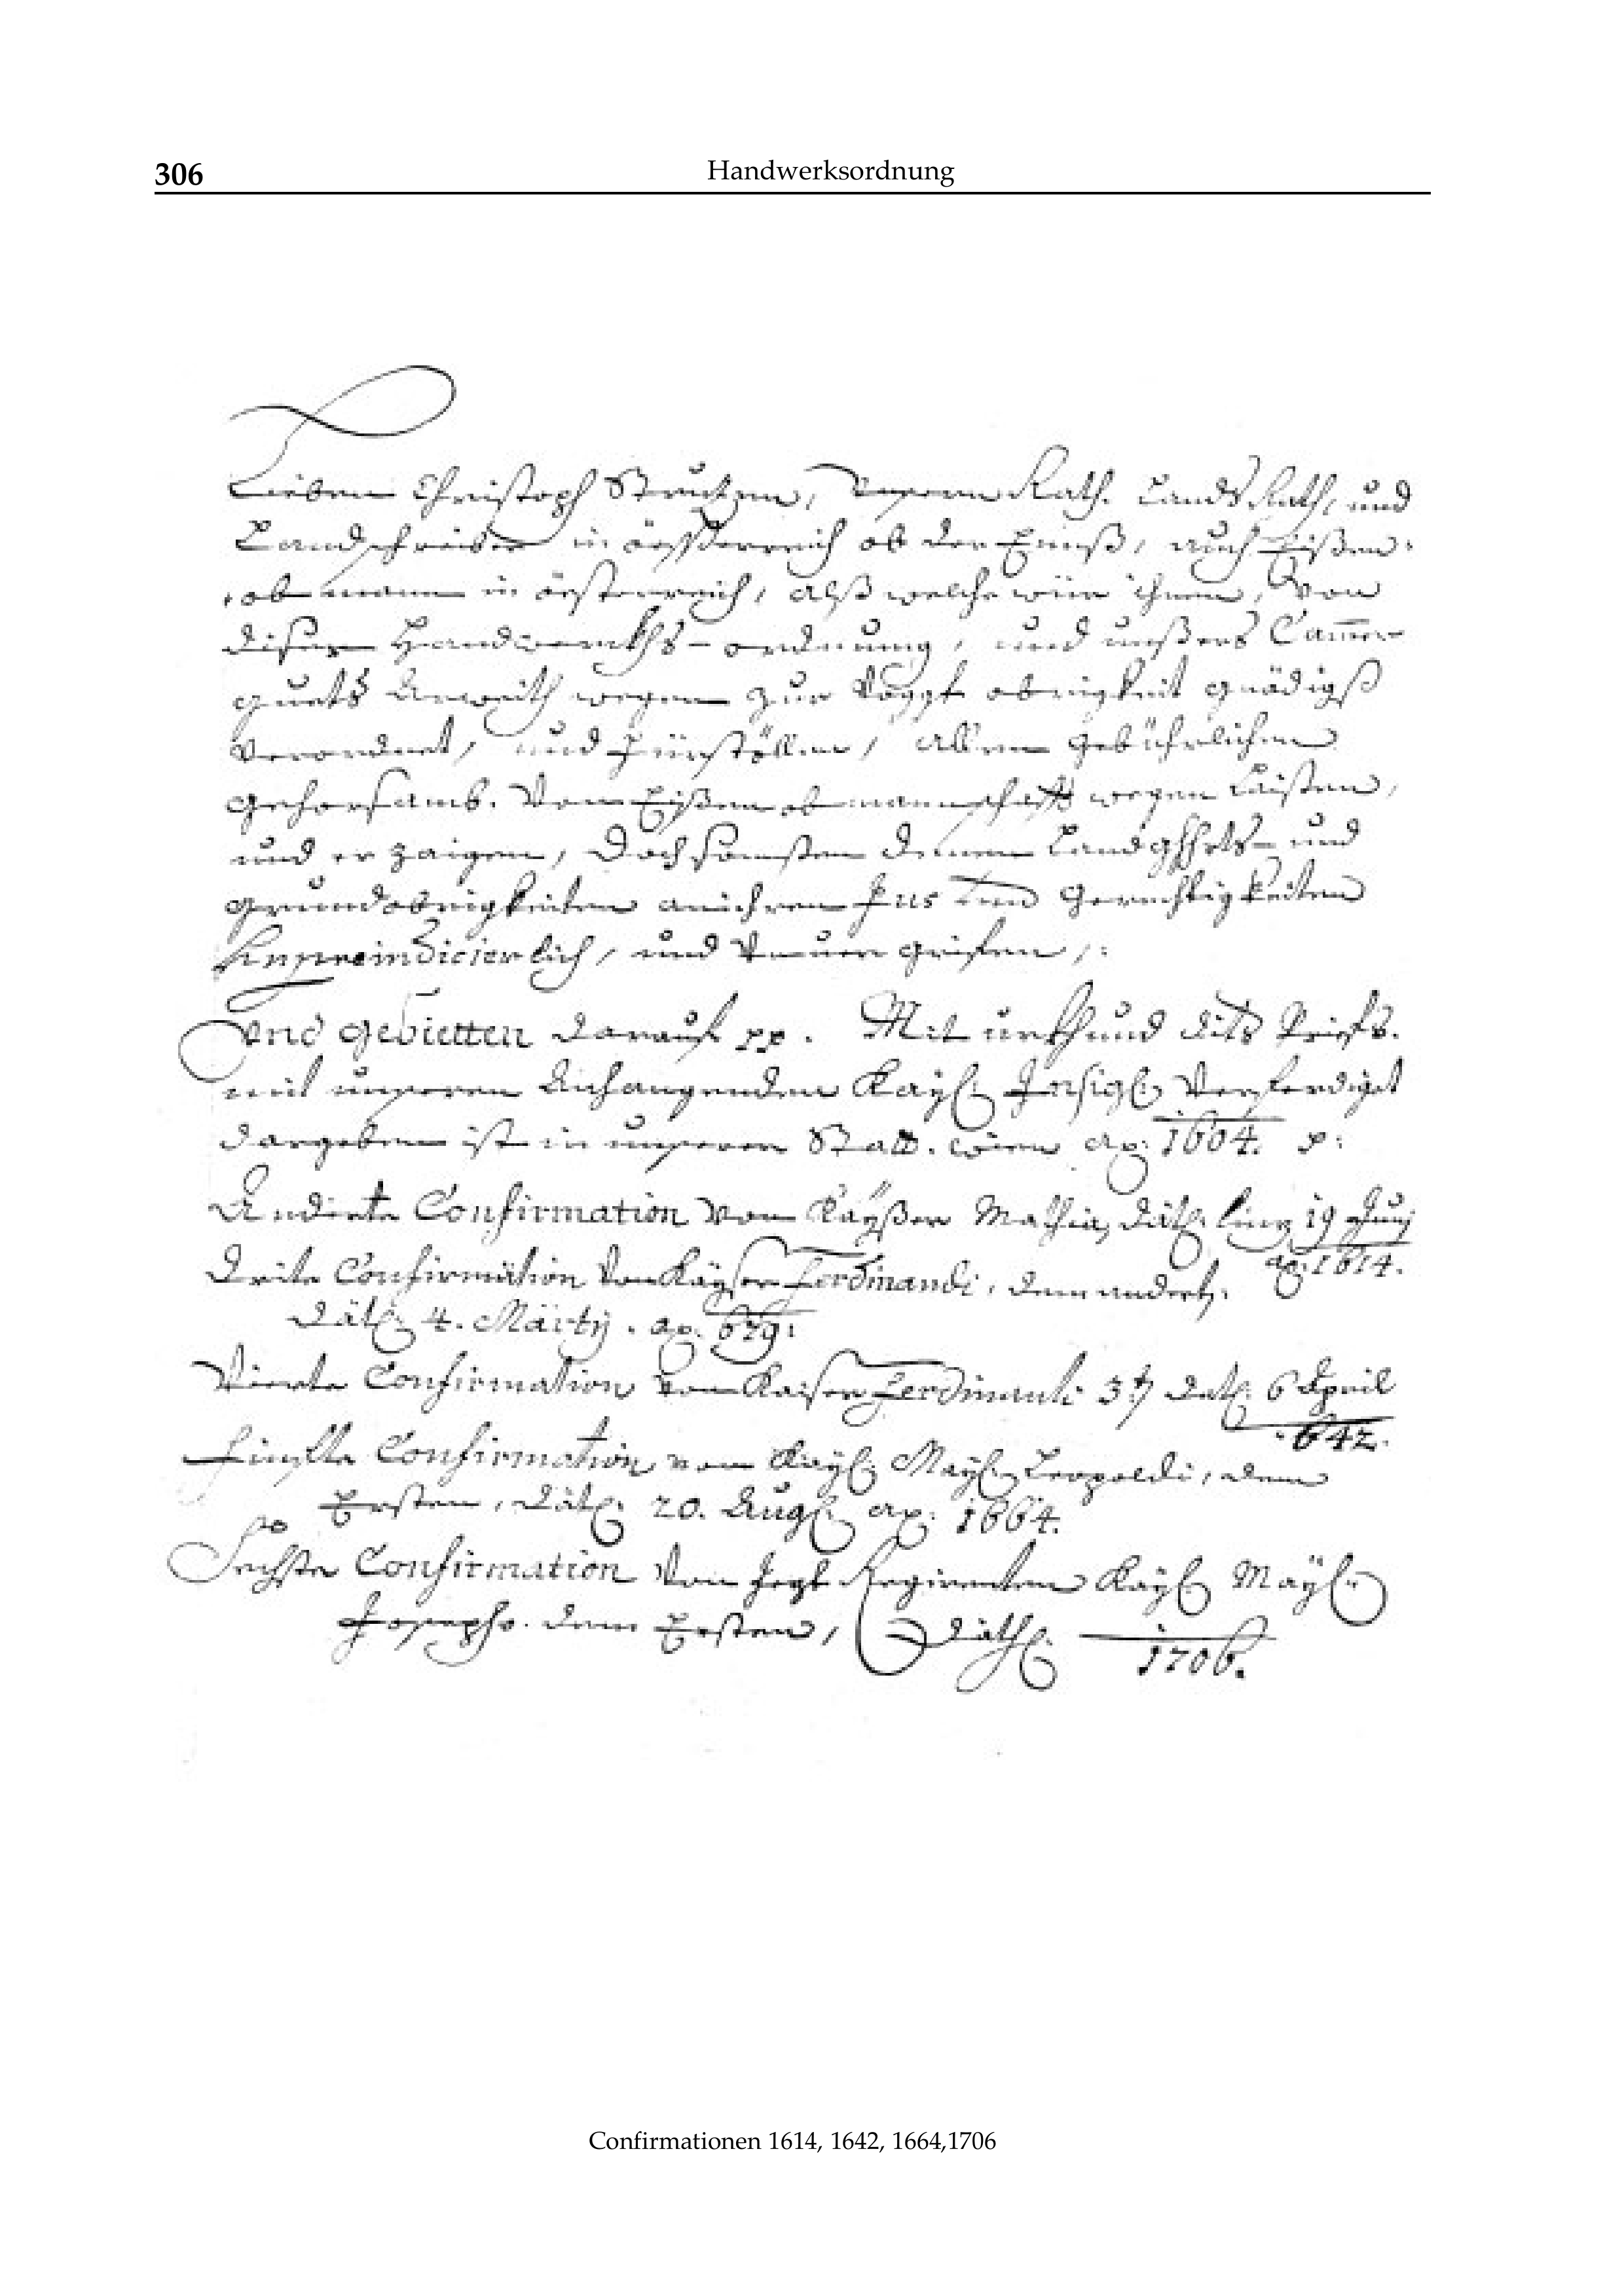 306
Handwerksordnung
Lieben Christoph Strutzen, Unseren Rath. Lands Rath, und
Landschreiber in össterreich ob der Ennß, auch Eißen-
obmann in össterreich, alß welche wür ihnen, von
diser Handwerckhs-ordnung, und unßers Camer
guets wegen zur Voggt obrigkeit gnädigst
verordnet, und fürstöllen, allen gebührlichen
gehorsamb. Von Eißenobmannschafft wegen laisten,
und erzaigen, doch sonnsten denen Landgshrts- und
grundobrigkeiten an ihren Jus und Gerechtigkeiten
lich, und
Und gebietten darauf pp. Mit urkhund dits briefs.
mit unseren Anhangenden Kayl: Insigl: Verferdiget
dargeben ist in unserer Statt. wien ao: 1604. p:
Anderte Confirmation von Kayßer Mathia, Datl: linz 19 Junj
ao: 1614.
Drite Confirmation von Kayser Ferdinandi, dem andert.
Datl: 4. Martÿ. ao.
Vierte Confirmation von Kaiser Ferdinandi 3t. Datl: 6 April
642.
Fünffte Confirmation von Kayl: Mayl: Leopoldi, dem
Ersten, Datl: 20. Augl: ao: 1664.
Sechste Confirmation von Jezt Regirenten Kayl: Mayl:
Josepho. dem Ersten, Datl: 1706.
Confirmationen 1614, 1642, 1664,1706